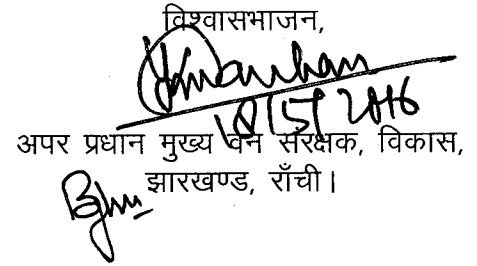 विश्वासभाजन,
18/5/2016
अपर प्रधान मुख्य वन संरक्षक, विकास,
झारखण्ड, राँची।